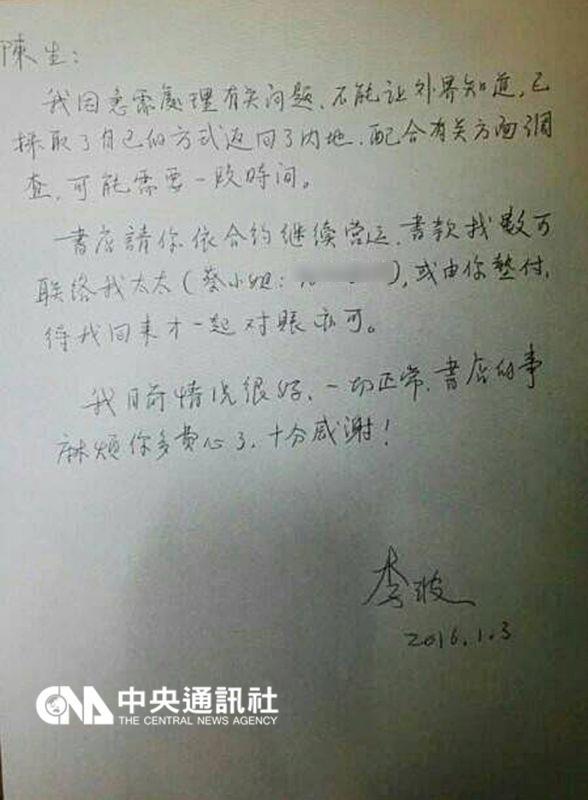 陳生：
我因急需處理有关问题，不能让外界知道，已
採取了自己的方式返回了内地，配合有关方面調
查，可能需要一段時间。
書店請你依合约继续营运，書款找數可
联络我太太（蔡小姐：），或由你墊付，
待我回来才一起对賬亦可。
我目前情况很好，一切正常，書店的事
麻煩你多費心了，十分感谢！
李波
2016.1.3
CNA 中央通訊社
THE CENTRAL NEWS AGENCY